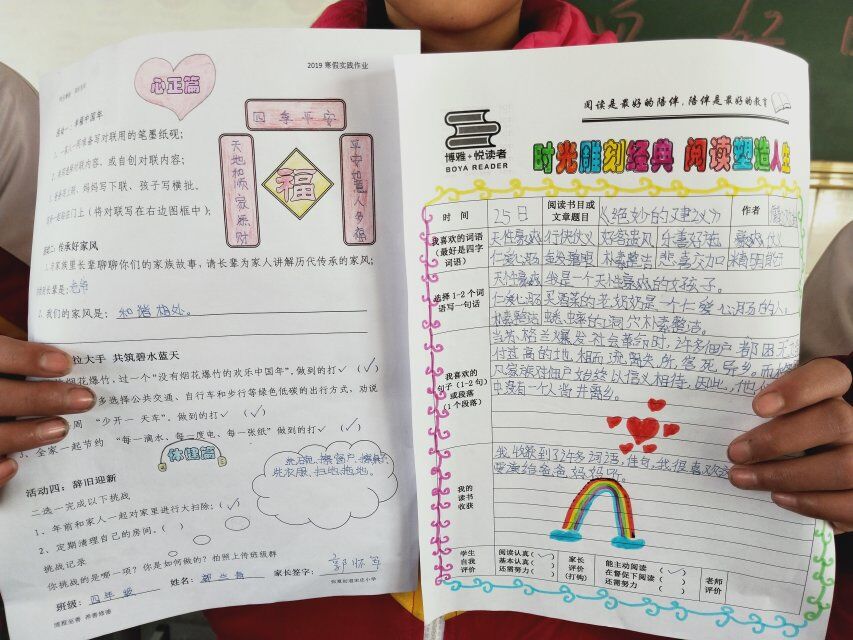 2019 寒假实践作业
心正篇
四季平安
天地和顺家添财
平安如意人多福
福
活动一:幸福中国年
1、一家人一同准备写对联用的笔墨纸砚;
对联内容,或自创对联内容;
妈妈写下联、孩子写横批。
门上(将对联写在右边图框中);
传承好家风
1、家族里长辈聊聊你们的家族故事,请长辈为家人讲解历代传承的家风;
长辈是:老爷
2、我们的家风是:和谐相处。
大手 共筑碧水蓝天
烟花爆竹,过一个“没有烟花爆竹的欢乐中国年”,做到的打✓ (✓)
多选择公共交通、自行车和步行等绿色低碳的出行方式,劝说
周 “少开一天车”,做到的打✓ (✓)
3、全家一起节约 “每一滴水、每一度电、每一张纸”做到的打✓ (✓)
体健篇
洗衣服、扫地、拖地。
活动四:辞旧迎新
二选一完成以下挑战
1、年前和家人一起对家里进行大扫除;(✓)
2、定期清理自己的房间。( )
挑战记录
你挑战的是哪一项?你是如何做的?拍照上传班级群
班级:四年级 姓名: 家长签字:郭怀军
博雅至善 养善修德
阅读是最好的陪伴,陪伴是最好的教育
博雅+悦读者
BOYA READER
时光雕刻经典 阅读塑造人生
时 间 25日 阅读书目或文章题目 《绝妙的建议》 作者
我喜欢的词语(最好是四字词语) 天性豪爽 行侠仗义 好客遗风 乐善好施
仁爱心肠 朴素整洁 悲喜交加
选择1-2个词语写一句话
天性豪爽 我是一个天性豪爽的女孩子。
仁爱心肠 买酒菜的老奶奶是一个仁爱心肠的人。
朴素整洁 蟋蟀的洞穴朴素整洁。
我喜欢的句子(1-2句)或段落(1个段落)
当苏格兰爆发社会革命时,许多佃户都因无
付过高的地租而流离失所,客死异乡。而
凡家族对佃户始终以信义相待,因此,他
中没有一个人背井离乡。
我的读书收获
我收获到了许多词语,佳句,我很喜欢
要读给爸爸妈妈听。
学生自我评价 阅读认真(✓) 基本认真( ) 还需努力( )
家长评价(打钩) 能主动阅读(✓) 在督促下阅读( ) 还需努力( )
老师评价